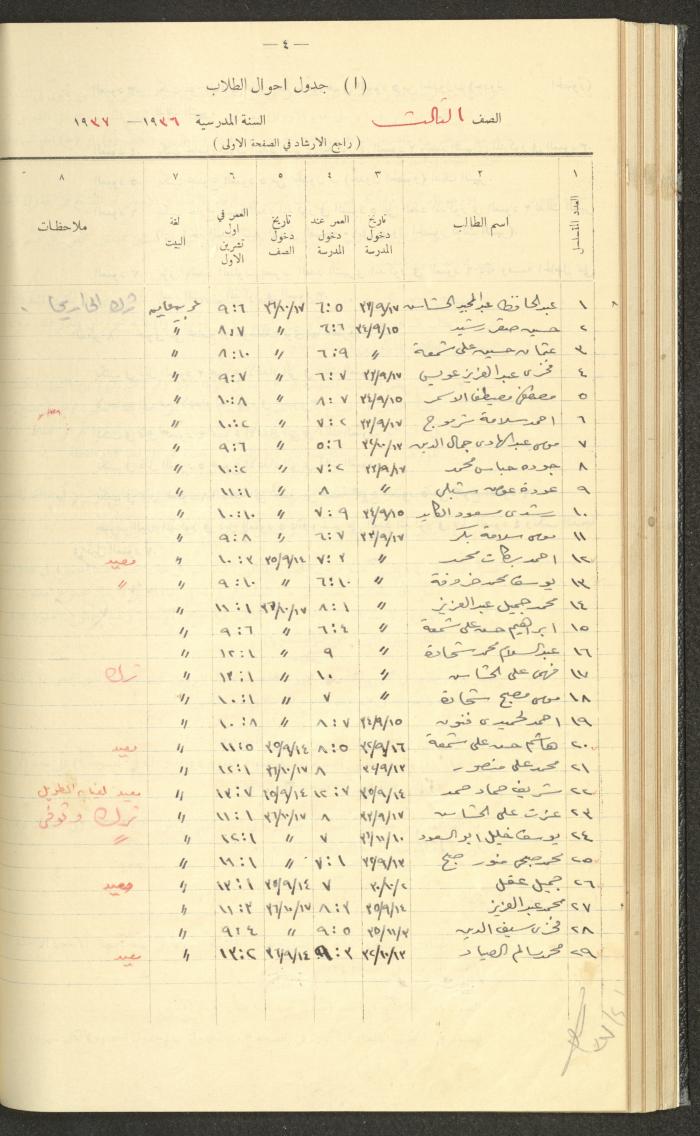 — ٤ —
(١) جدول احوال الطلاب
الصف الثالث السنة المدرسية ١٩٣٦ — ١٩٣٧
( راجع الارشاد في الصفحة الاولى )
١ ٢ ٣ ٤ ٥ ٦ ٧ ٨
العدد المتسلسل اسم الطالب تاريخ دخول المدرسة العمر عند دخول المدرسة تاريخ دخول الصف العمر في اول تشرين الاول لغة البيت ملاحظات
١ عبد الحافظ عبد المجيد ٣٣/٩/١٧ ٦:٥ ٣٦/١٠/١٧ ٩:٦ عربية ترك الى اريحا
٢ حسين صقر رشيد ٣٤/٩/١٥ ٦:٦ " ٨:٧ "
٣ عثمان حسين علي شمعة " ٦:٩ " ٨:١٠ "
٤ فخري عبد العزيز عويس ٣٣/٩/١٧ ٦:٧ " ٩:٧ "
٥ مصطفى مصطفى الاسمر ٣٤/٩/١٥ ٨:٧ " ١٠:٨ "
٦ احمد سلامة ٣٣/٩/١٧ ٧:٢ " ١٠:٢ "
٧ موسى عبد الهادي جمال الدين ٥:٦ " ٩:٦ "
٨ جوده عباس محمد ٣٣/٩/١٧ ٧:٢ " ١٠:٢ "
٩ عودة عوض شبلي " ٨ " ١١:١ "
١٠ رشدي سعود الكايد ٣٤/٩/١٥ ٧:٩ " ١٠:١٠ "
١١ موسى سلامة بكر ٣٣/٩/١٧ ٦:٧ " ٩:٨ "
١٢ احمد بركات محمد " ٧:٣ ٣٥/٩/١٤ ١٠:٣ " معيد
١٣ يوسف محمد خروفة " ٦:١٠ " ٩:١٠ " "
١٤ محمد جميل عبد العزيز " ٨:١ ٣٦/١٠/١٧ ١١:١ "
١٥ ابراهيم حسن علي شمعة " ٦:٤ " ٩:٦ "
١٦ عبد السلام محمد شحادة " ٩ " ١٢:١ "
١٧ فهمي علي " ١٠ " ١٣:١ " ترك
١٨ موسى مصبح شحادة " ٧ " ١٠:١ "
١٩ احمد فنون ٣٤/٩/١٥ ٨:٧ " ١٠:٨ "
٢٠ هاشم حسن علي شمعة ٣٢/٩/١٦ ٨:٥ ٣٥/٩/١٤ ١١:٥ " معيد
٢١ محمد علي منصور ٨ ٣٦/١٠/١٧ ١٢:١ "
٢٢ شريف حماد حمد ٣٥/٩/١٤ ١٢:٧ ٣٥/٩/١٤ ١٣:٧ " معيد لغيابه الطويل
٢٣ عزت علي ٣٣/٩/١٧ ٨ ٣٦/١٠/١٧ ١١:١ " ترك وتوفي
٢٤ يوسف خليل ابو السعود ٣٦/١١/١٠ ٧ " ١٢:١ " "
٢٥ محمد صبحي ٧:١ " ١١:١ "
٢٦ جميل عقل ٣٠/١٠/٢ ٧ ٣٥/٩/١٤ ١٣:١ " معيد
٢٧ محمد عبد العزيز ٣٥/٩/١٤ ٨:٢ ٣٦/١٠/١٧ ١١:٣ "
٢٨ فخري سيف الدين ٣٥/١١/٣ ٩:٥ " ٩:٤ "
٢٩ محمد سالم الصياد ٣٢/١٠/١٣ ٩:٢ ٣٦/٩/١٤ ١٣:٢ " معيد